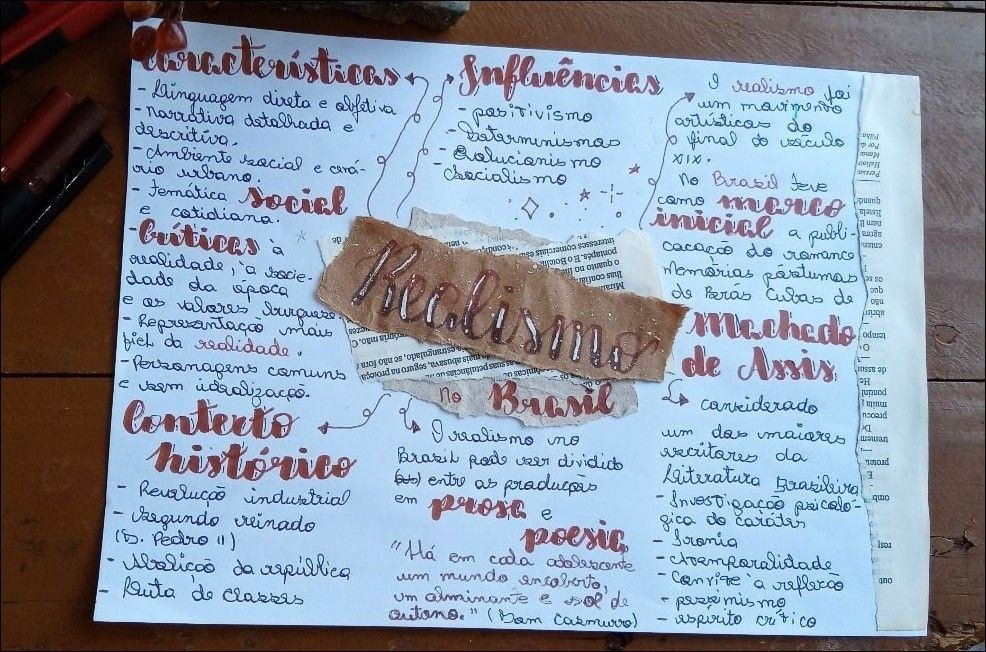 Características
- Linguagem direta e objetiva
- Narrativa detalhada e
descritiva.
- Ambiente social e cená-
rio urbano.
- Temática social
e cotidiana.
- Críticas à
realidade, à socie-
dade da época
e os valores burgueses
- Representação mais
fiel da realidade.
- Personagens comuns
e sem idealização.
Influências
- positivismo
- Determinismos
- Evolucionismo
- Socialismo
O realismo foi
um movimento
artísticas do
final do século
XIX.
No Brasil teve
como marco
inicial a publi-
cacação do romance
Memórias póstumas
de Brás Cubas de
Machado
de Assis
considerado
um dos maiores
escritores da
Literatura Brasileira
- Investigação psicoló-
gica do caráter
- Ironia
- Atemporalidade
- Convite à reflexão
- pessimismo
- espírito crítico
Realismo
No Brasil
O realismo no
Brasil pode ser dividido
entre as produções
em prosa e
poesia
"Há em cada adolescente
um mundo encoberto,
um alminante e sol de
outono." (Dom Casmurro)
Contexto
histórico
- Revolução industrial
- Segundo reinado
(D. Pedro II)
- Abolição da república
- Luta de classes